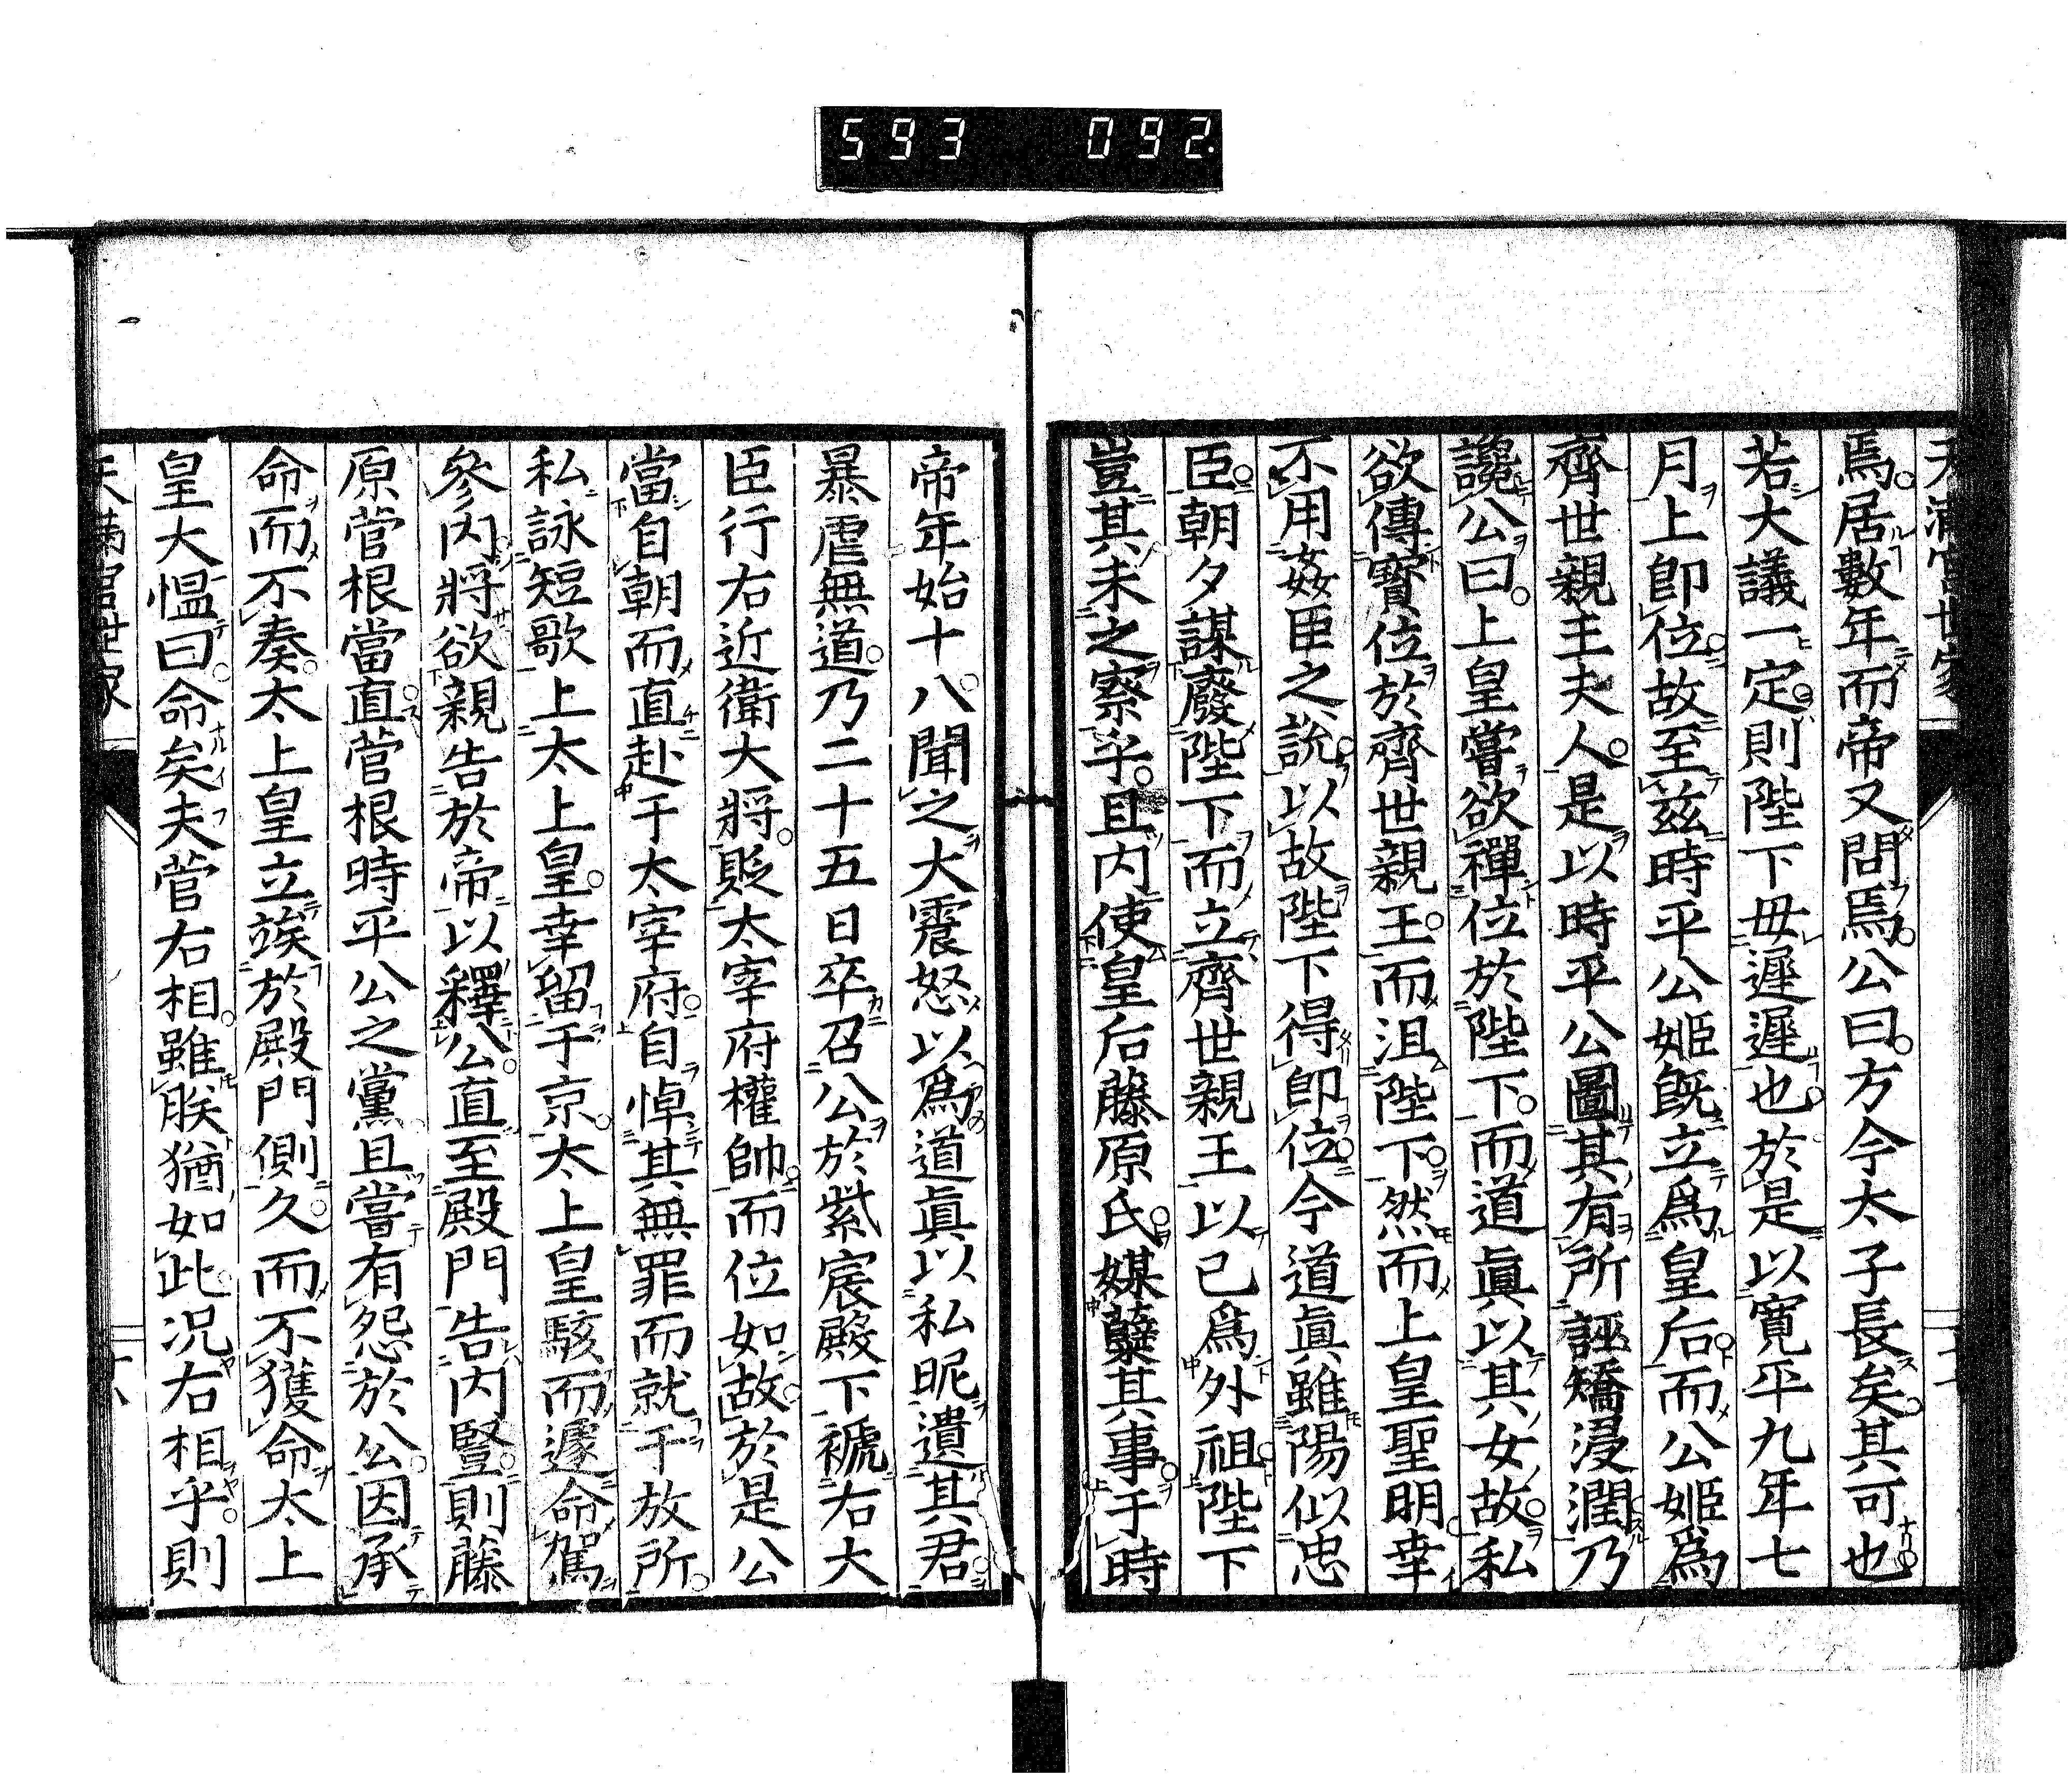 593 092.
天滿宮世家
焉居數年而帝又問焉公曰方今太子長矣其可也
若大議一定則陛下毋遲遲也於是以寬平九年七
月上卽位故至茲時平公姬既立爲皇后而公姬爲
齊世親王夫人是以時平公圖其有所誣矯浸潤乃
讒公曰上皇嘗欲禪位於陛下而道眞以其女故私
欲傳寳位於齊世親王而沮陛下然而上皇聖明幸
不用姦臣之說以故陛下得卽位今道眞雖陽似忠
臣朝夕謀廢陛下而立齊世親王以己爲外祖陛下
豈其未之察乎且内使皇后藤原氏媒孽其事于時
帝年始十八聞之大震怒以爲道眞以私昵遺其君
暴虐無道乃二十五日卒召公於紫宸殿下褫右大
臣行右近衛大將貶太宰府權帥而位如故於是公
當自朝而直赴于太宰府自悼其無罪而就于放所
私詠短歌上太上皇幸留于京太上皇駭而遽命駕
參内將欲親告於帝以釋公直至殿門告内豎則藤
原菅根當直菅根時平公之黨且嘗有怨於公因承
命而不奏太上皇立竢於殿門側久而不獲命太上
皇大慍曰命矣夫菅右相雖朕猶如此況右相乎則
天滿宮世家